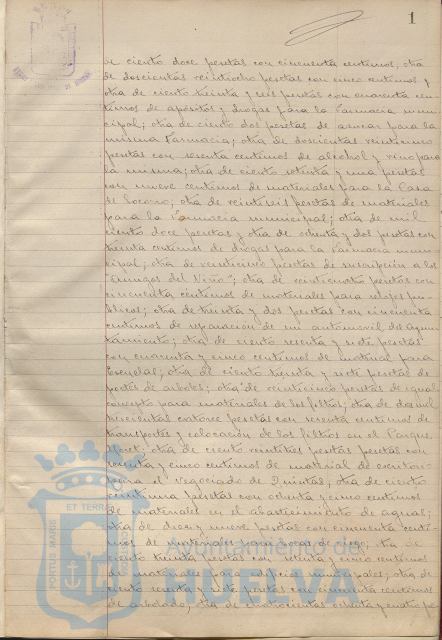 1
de ciento doce pesetas con cincuenta centimos, otra
de doscientas veintiocho pesetas con cinco centimos y
otra de ciento treinta y seis pesetas con cuarenta cen-
timos de apósitos y drogas para la farmacia muni-
cipal; otra de ciento dos pesetas de azucar para la
misma farmacia; otra de doscientas veinticinco
pesetas con sesenta centimos de alcohol y vino para
la misma; otra de ciento setenta y una pesetas
con nueve centimos de materiales para la Casa
de Socorro; otra de veintiseis pesetas de materiales
para la Farmacia municipal; otra de mil
ciento doce pesetas y otra de ochenta y dos pesetas con
treinta centimos de drogas para la Farmacia muni-
cipal; otra de veinticinco pesetas de suscripción a los
"Amigos del Niño"; otra de veinticuatro pesetas con
cincuenta centimos de materiales para relojes pú-
blicos; otra de treinta y dos pesetas con cincuenta
centimos de reparacion de un automovil del Ayun-
tamiento; otra de ciento sesenta y siete pesetas
con cuarenta y cinco centimos de material para
Escuelas; otra de ciento treinta y siete pesetas de
portes de arboles; otra de veinticinco pesetas de igual
concepto para materiales de los filtros; otra de dos mil
trescientas catorce pesetas con sesenta centimos de
transportes y colocación de los filtros en el Parque
otra de ciento veintitres pesetas con
sesenta y cinco centimos de material de escritorio
para el Negociado de Quintas; otra de ciento
pesetas con ochenta y cinco centimos
de materiales en el abastecimiento de aguas;
otra de diez y nueve pesetas con cincuenta centi-
mos de materiales para bocas de riego; otra de
ciento treinta pesetas con setenta y cinco centimos
de materiales para edificios municipales; otra de
ciento sesenta y siete pesetas con cincuenta centimos
de arbolado; otra de cuatrocientas ochenta y cuatro pe
PORTUS MARIS ET TERRAE
Ayuntamiento de
HUELVA